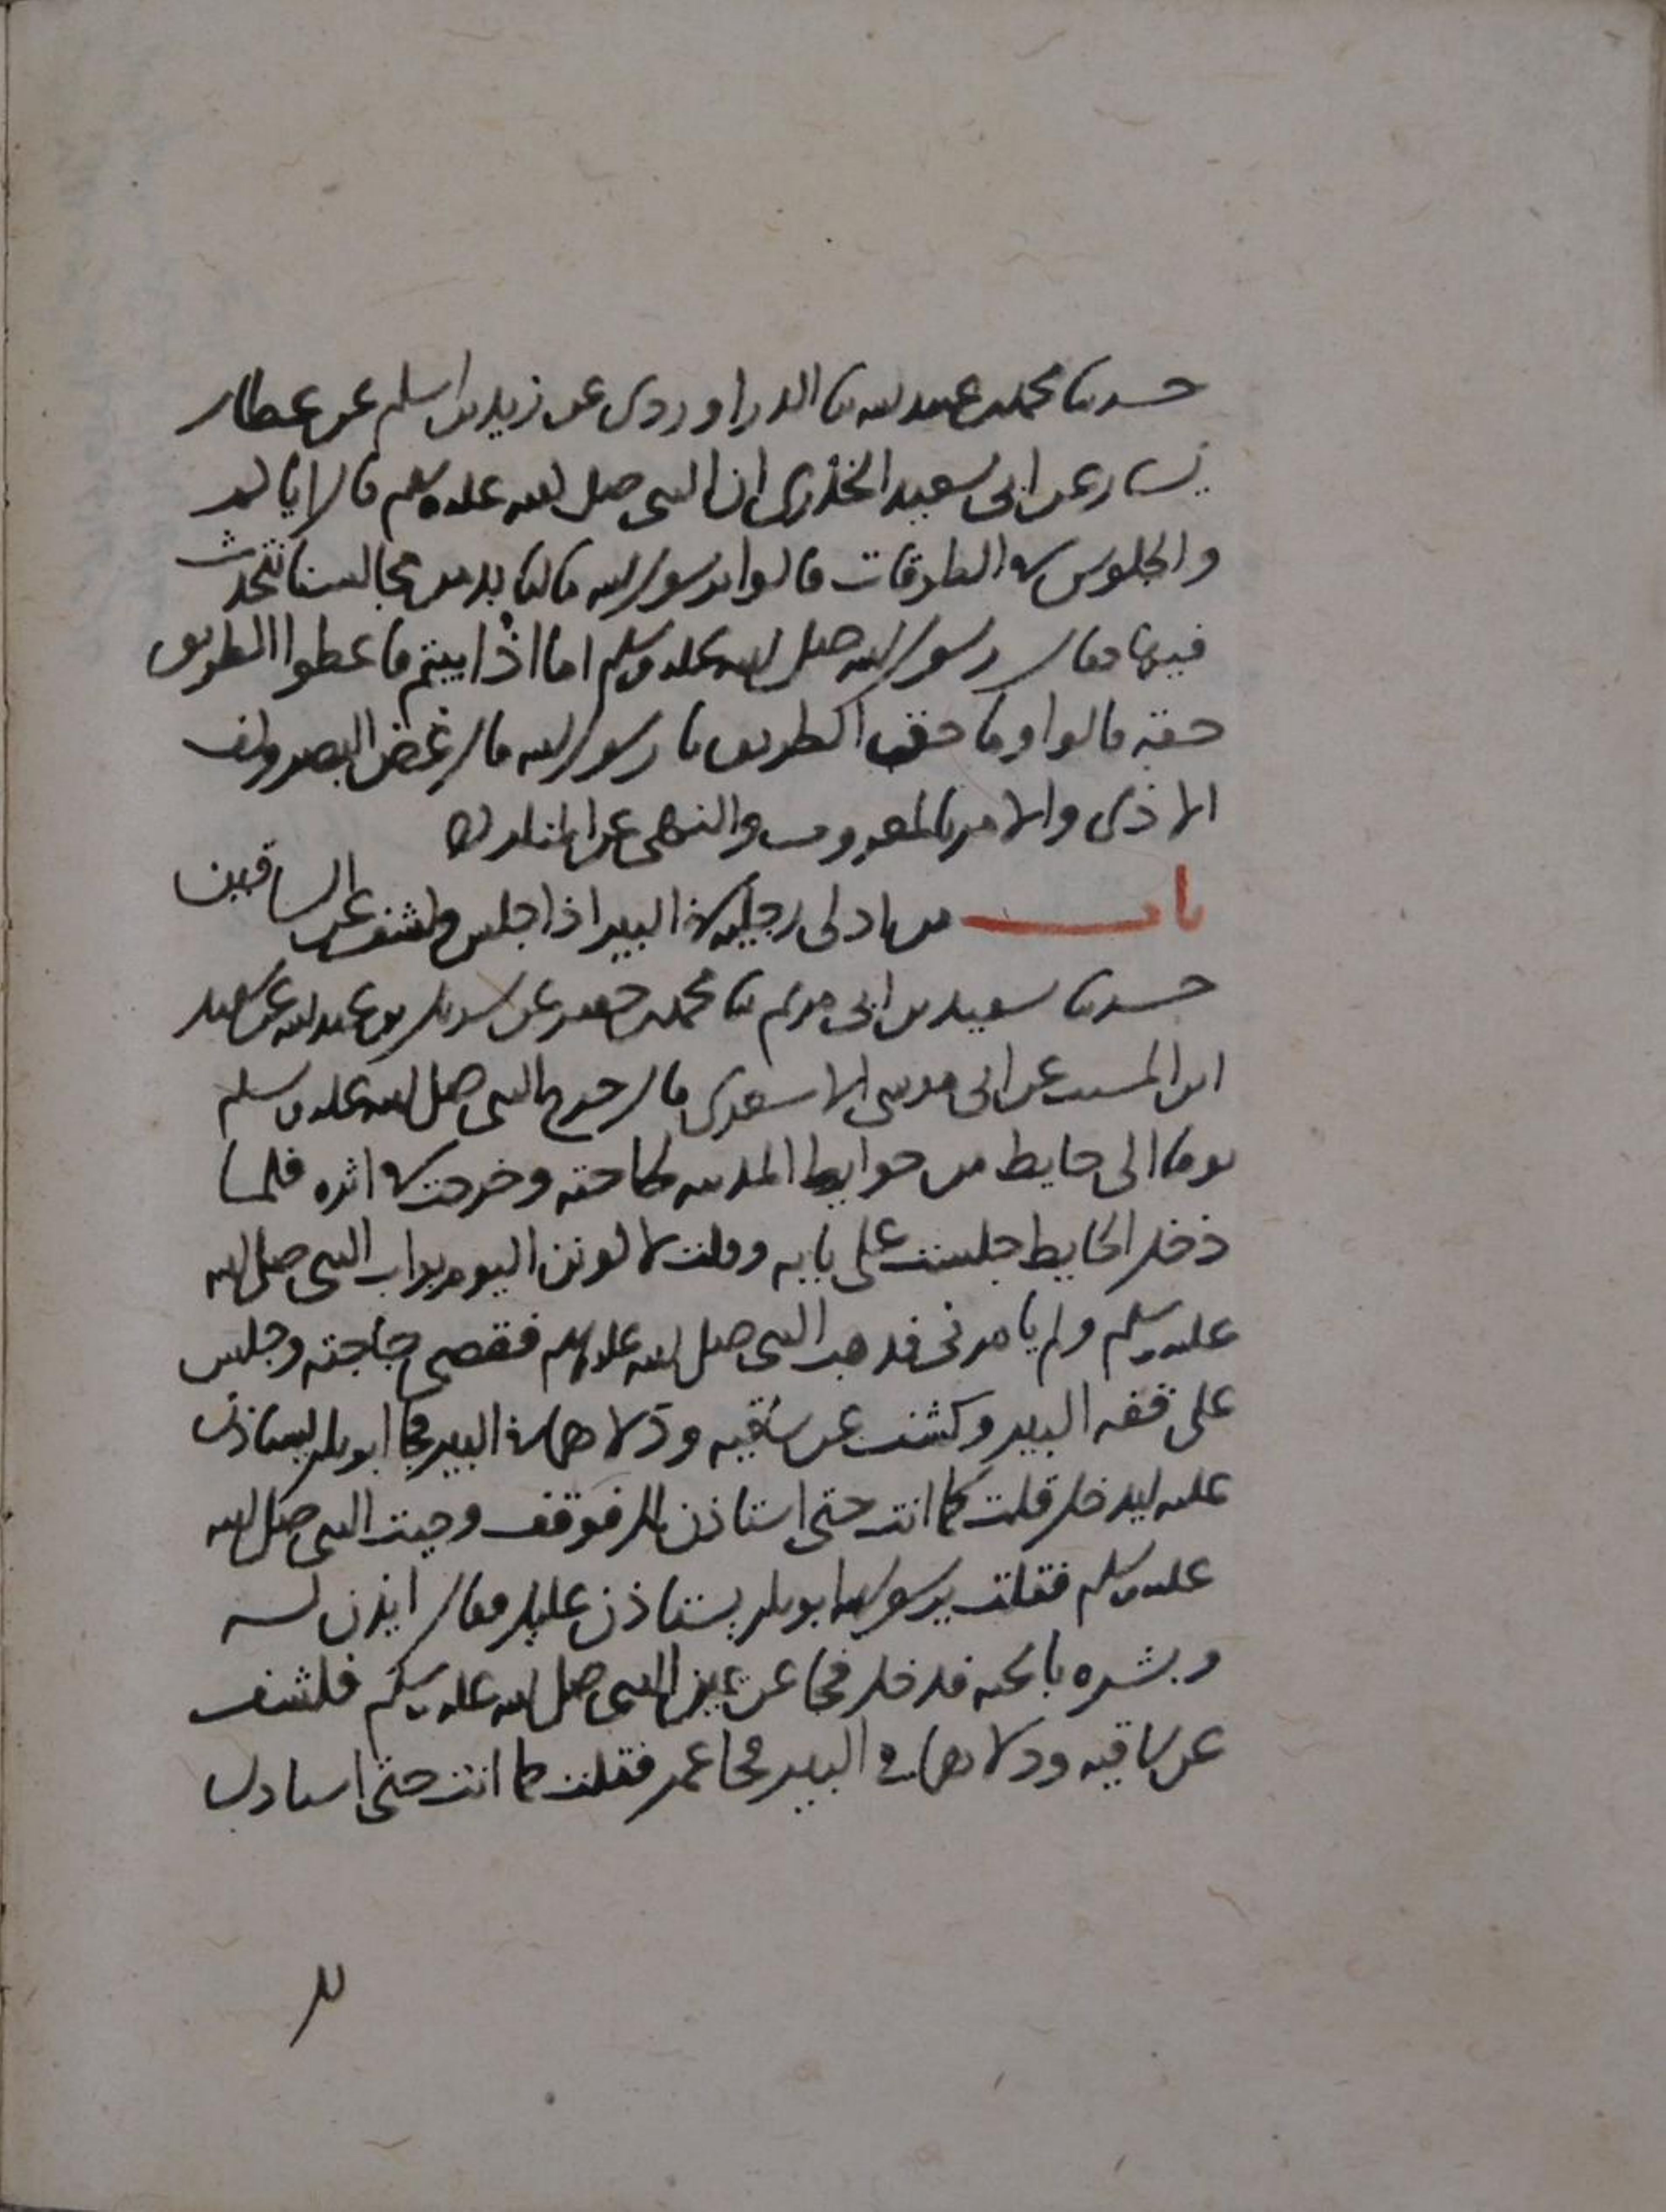 حدثنا محمد بن عبيد الله ثنا الدراوردى عن زيد بن اسلم عن عطا بن
يسار عن ابى سعيد الخذرى ان النبى صلى الله عليه وسلم قال اياكم
والجلوس فى الطرقات قالوا يرسول الله مالنا بد من مجالسنا نتحدث
فيها فقال رسول الله صلى الله عليه وسلم اما اذا ابيتم فاعطوا الطريق
حقه قالوا وما حق الطريق يا رسول الله قال غض البصر وكف
الاذى والامر بالمعروف والنهى عن المنكر
باب من ادلى رجليه فى البير اذا جلس وكشف عن الساقين
حدثنا سعيد بن ابى مريم ثنا محمد بن جعفر عن شريك بن عبد الله عن سعيد
ابن المسيب عن ابى موسى الاشعرى قال خرج النبى صلى الله عليه وسلم
يوما الى حايط من حوايط المدينه لحاجته وخرجت فى اثره فلما
دخل الحايط جلست على بابه وقلت لاكونن اليوم بواب النبى صلى الله
عليه وسلم ولم يامرنى فذهب النبى صلى الله عليه وسلم فقضى حاجته وجلس
على قفه البير وكشف عن ساقيه ودلاهما فى البير فجا ابو بكر يستاذن
عليه ليدخل قلت كما انت حتى استاذن لك فوقف وجيت النبى صلى الله
عليه وسلم فقلت يرسول الله ابو بكر يستاذن عليك فقال ايذن له
وبشره بالجنه فدخل فجا عن يمين النبى صلى الله عليه وسلم فكشف
عن ساقيه ودلاهما فى البير فجا عمر فقلت كما انت حتى استاذن
لك